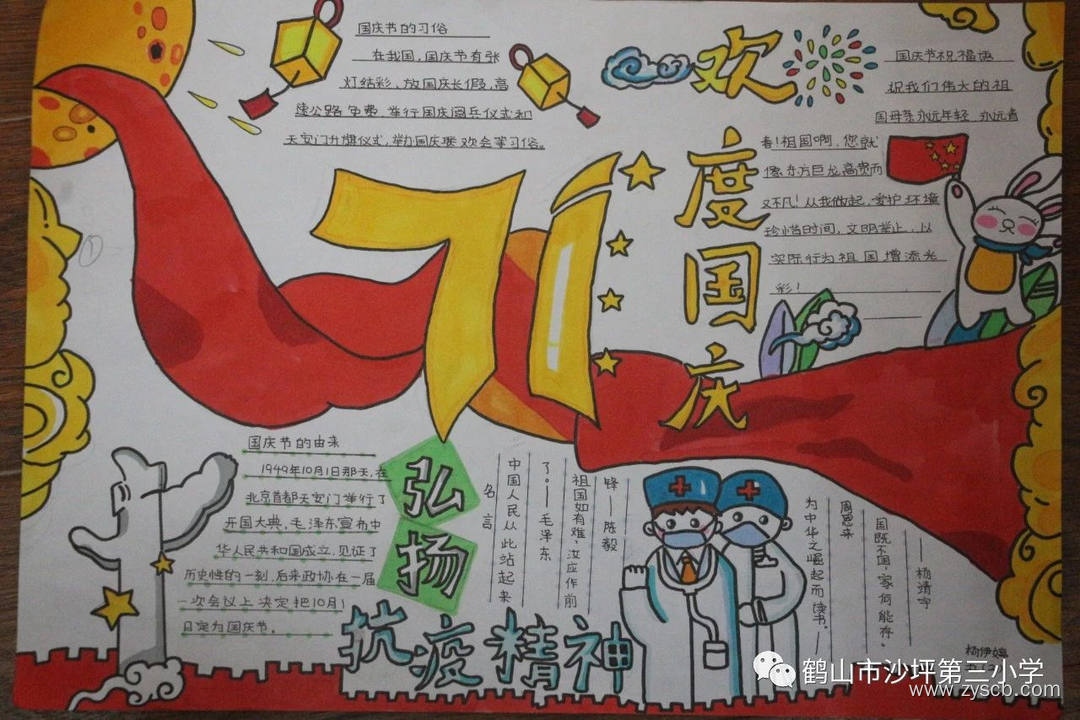 国庆节的习俗
在我国,国庆节有张
灯结彩,放国庆长假,高
速公路免费,举行国庆阅兵仪式和
天安门升旗仪式,举办国庆联欢会等习俗。
欢
度
国
庆
国庆节祝福语
祝我们伟大的祖
国母亲永远年轻 永远青
春!祖国啊,您就
像东方巨龙,高贵而
又不凡!从我做起,爱护环境
珍惜时间,文明举止,以
实际行为祖国增添光
彩!
71
国庆节的由来
1949年10月1日那天,在
北京首都天安门举行了
开国大典,毛泽东宣布中
华人民共和国成立,见证了
历史性的一刻,后来政协在一届
一次会以上决定把10月1
日定为国庆节。
弘
扬
抗疫精神
名言
中国人民从此站起来
了。——毛泽东
祖国如有难,汝应作前
锋——陈毅
为中华之崛起而读书。——
周恩来
国既不国,家何能存。
——杨靖宇
杨伊婷
鹤山市沙坪第三小学
www.zyscb.com